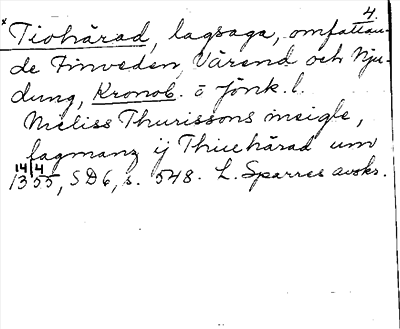 4.
*Tiohärad, lagsaga, omfattan-
de Finveden, Värend och Nju-
dung, Kronob. o Jönk. l.
Meliss Thurissons insigle,
lagmanz ij Thiuehärad um
14/4
1355, SD6, s. 548. L. Sparres avskr.